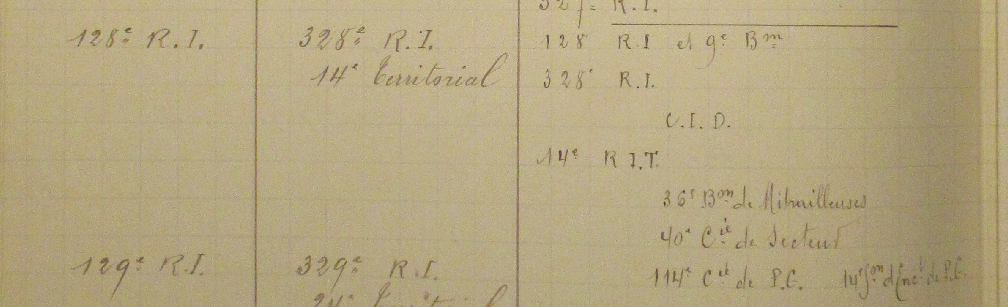 327e R.I.
128e R.I.
328e R.I.
14e Territorial
128 R.I et 9e Bon
328e R.I.
C.I.D.
14e R.I.T.
36e Bon de Mitrailleuses
40e Cie de Secteur
129e R.I.
329e R.I.
114e Cie de P.G. 14e
24e Territorial